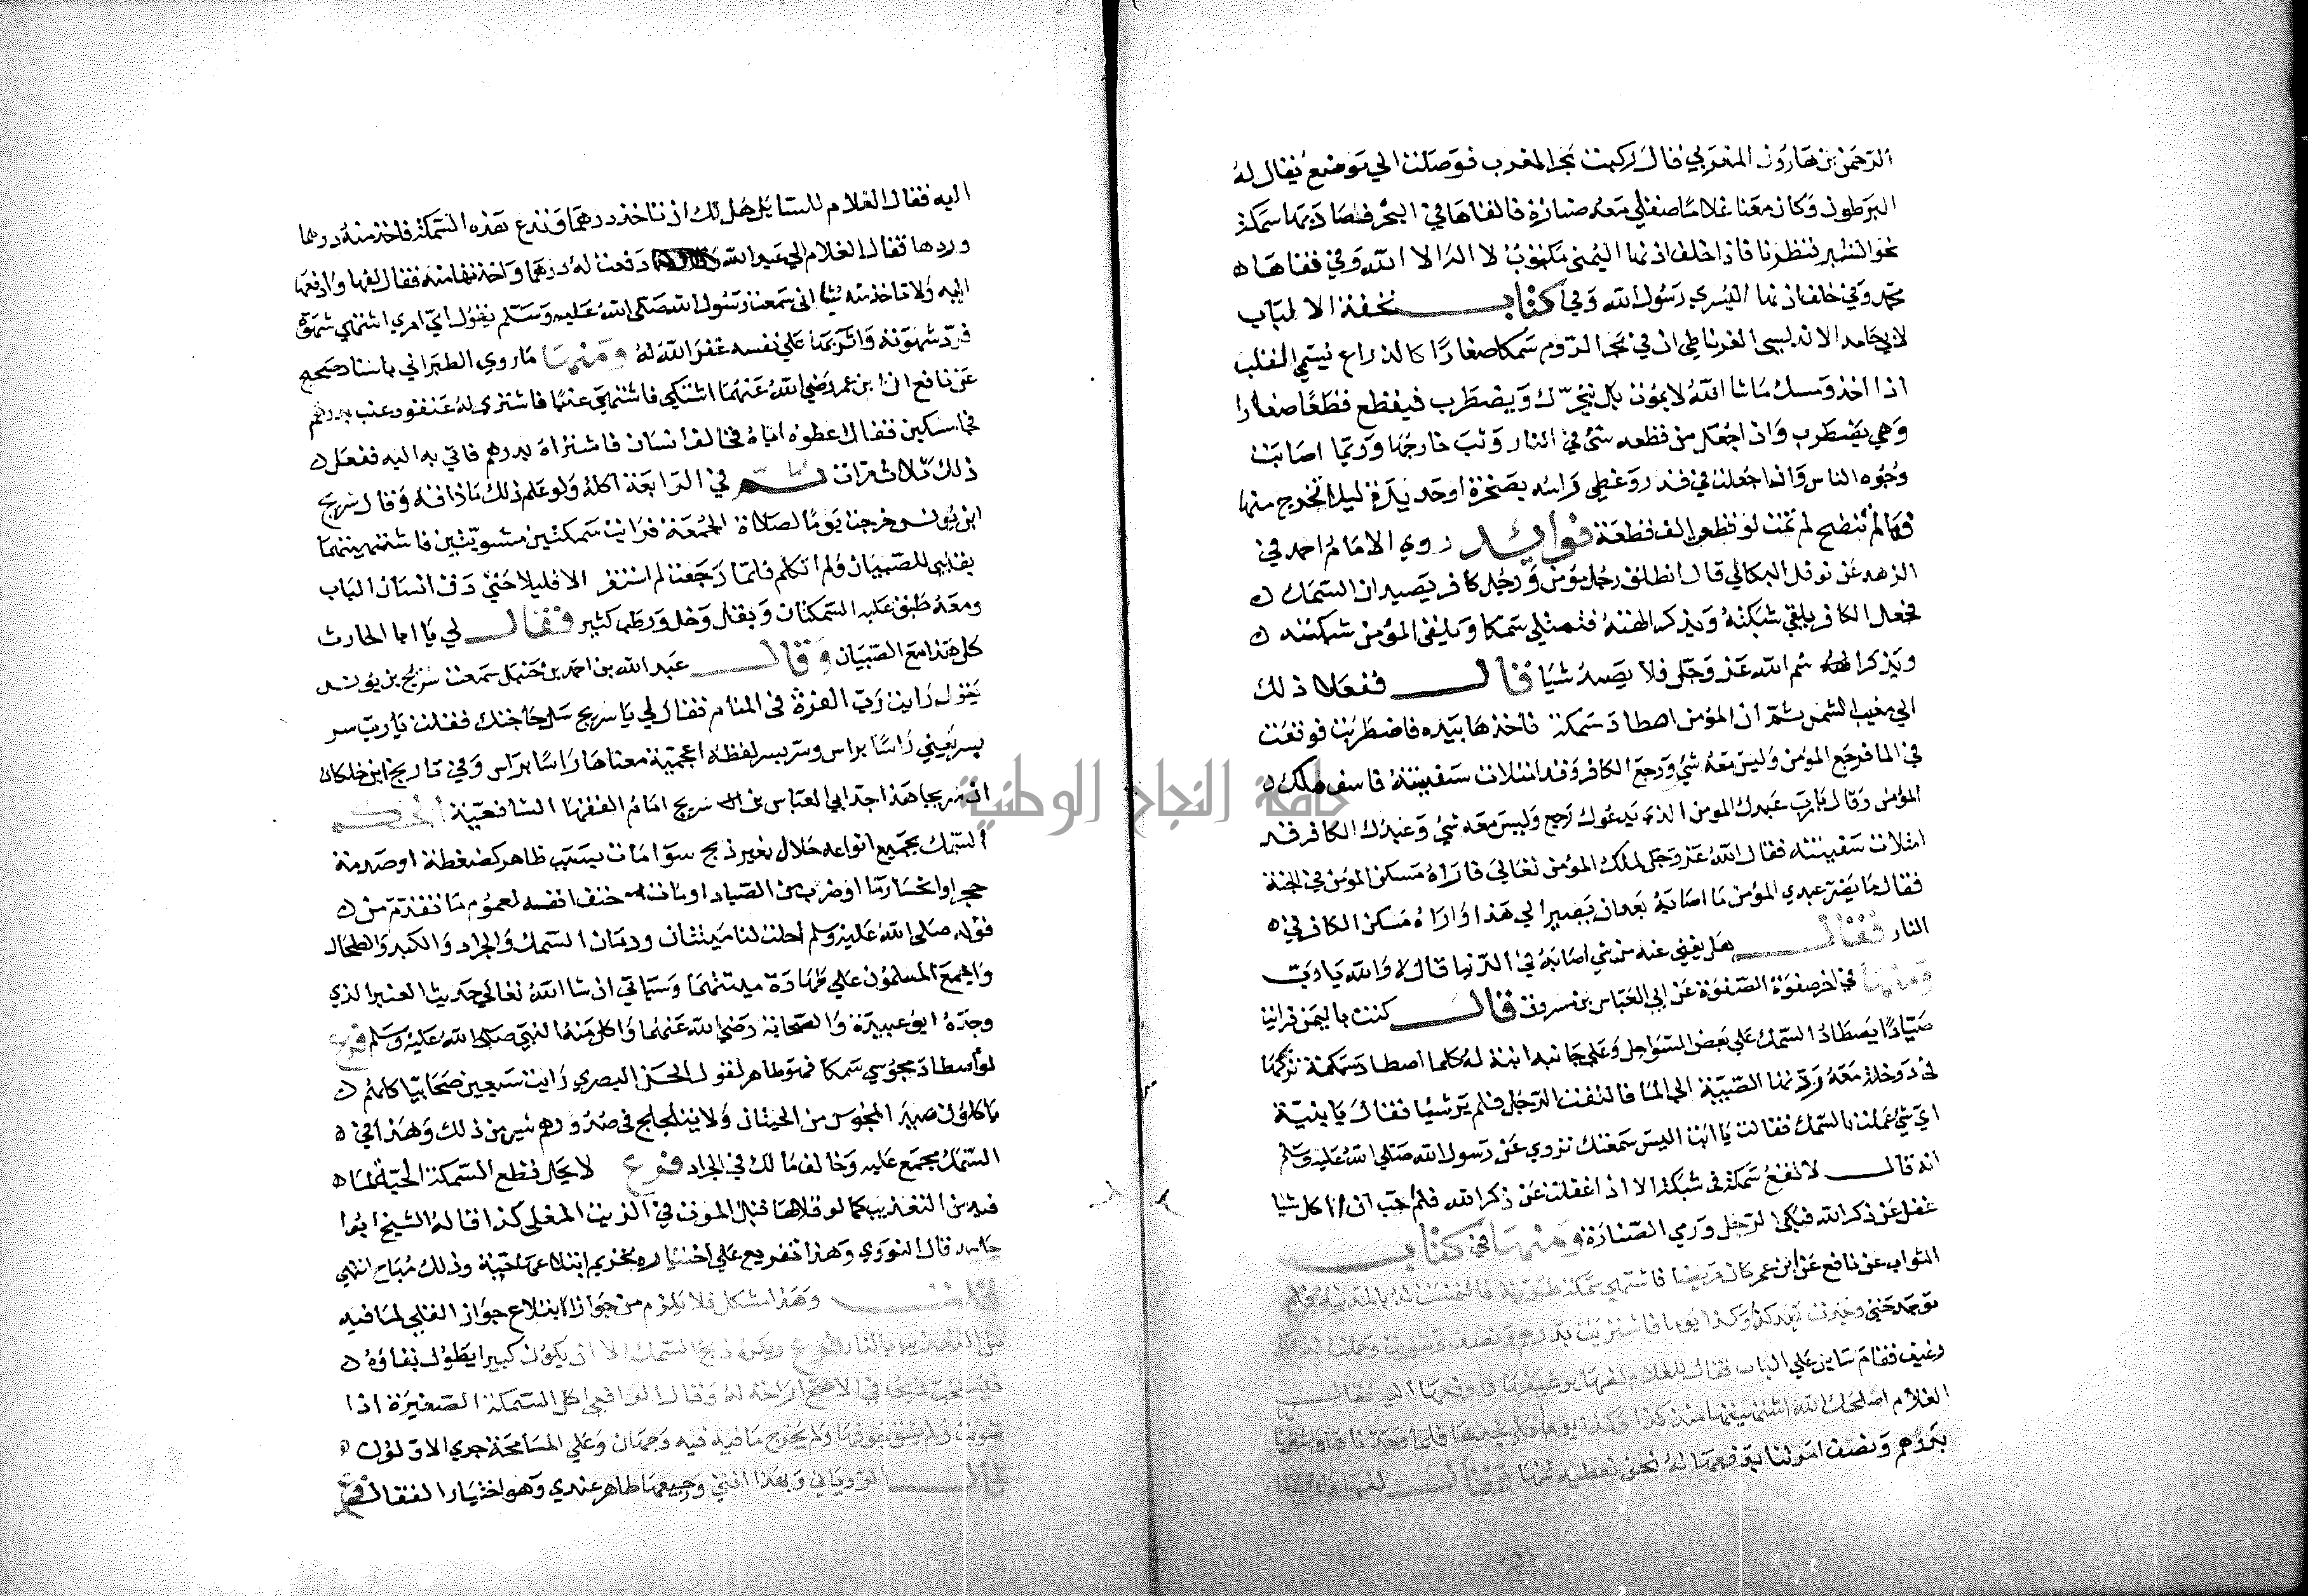 الرحمن بن هارون المغربي قال ركبت بحر المغرب فوصلت الي موضع يقال له
البرطون وكان معنا غلاما صقلي معه صنارة فالقاها في البحر فصاد بها سمكة
نحو الشبر فنظرنا فاذا خلف اذنها اليمني مكتوب لا اله الا الله وفي قفاها
محمد وفي خلف اذنها اليسري رسول الله وفي كتاب تحفة الالباب
لابي حامد الاندلسي الغرناطي ان في بحر الروم سمكا صغارا كالذراع يسمي المغلب
اذا اخذ ومسك ما شا الله لا يموت بل يتحرك ويضطرب فيقطع قطعا صغارا
وهي يضطرب واذا جعل من قطعه شئ في النار وثب خارجها وربما اصابت
وجوه الناس واذا جعلت في قدر وغطي راسه بصخرة او حديدة ليلا تخرج منها
فما لم تنضج لم تمت لو قطع الف قطعة فوايد روي الامام احمد في
الزهد عن نوفل البكالي قال انطلق رجل مؤمن ورجل كافر يصيدان السمك
فجعل الكافر يلقي شبكته ويذكر الهته فتمتلي سمكا ويلقي المؤمن شبكته
ويذكر اسم الله عز وجل فلا يصيد شيا قال ففعلا ذلك
الي مغيب الشمس ثم ان المؤمن اصطاد سمكة فاخذها بيده فاضطربت فوقعت
في الما فرجع المؤمن وليس معه شئ ورجع الكافر وقد امتلات سفينته فاسف ملك
المؤمن وقال يارب عبدك المومن الذي يدعوك رجع وليس معه شئ وعبدك الكافر قد
امتلات سفينته فقال الله عز وجل لملك المؤمن تعالي فاراه مسكن المؤمن في الجنة
فقال ما يضر عبدي المؤمن ما اصابه بعد ان يصير الي هذا واراه مسكن الكافر في
النار فقال هل يغني عنه من شي اصابه في الدنيا قال لا والله يا رب
ومنها في اخر صفوة الصفوة عن ابي العباس بن مسروق قال كنت باليمن فرايت
صيادا يصطاد السمك علي بعض السواحل وعلي جانبه ابنة له كلما اصطاد سمكة تركها
في دوخلة معه ردتها الصبية الي الما فالتفت الرجل فلم ير شيا فقال يا بنية
اي شئ عملت بالسمك فقالت يا ابت اليس سمعتك تروي عن رسول الله صلي الله عليه وسلم
انه قال لا تقع سمكة في شبكة الا اذا غفلت عن ذكر الله فلم احب ان اكل شيا
غفل عن ذكر الله فبكي الرجل ورمي الصنارة ومنها في كتاب
الثواب عن نافع عن ابن عمر كان مريضا فاشتهي سمكة طرية فالتمست له بالمدينة فلم
توجد حتي وجدت بعد كذا وكذا يوما فاشتريت بدرهم ونصف وشويت وحملت له
رغيف فقام سايل علي الباب فقال للغلام لفها برغيفها وادفعها اليه فقال
الغلام اصلحك الله اشتهيتها منذ كذا وكذا يوما فلم نجدها فلما وجدناها واشتريناها
بدرهم ونصف امرتنا بدفعها له نحن نعطيه ثمنها فقال لفها وادفعها
اليه
اليه فقال الغلام للسايل هل لك ان تاخذ درهما وتدع هذه السمكة فاخذ منه درهما
وردها فقال الغلام الي عبد الله دفعت له درهما واخذتها منه فقال لفها وادفعها
اليه ولا تاخذ منه شيا اني سمعت رسول الله صلي الله عليه وسلم يقول اي امري اشتهي شهوة
فرد شهوته واثر بها علي نفسه غفر الله له ومنها ما روي الطبراني باسناد صحيح
عن نافع ان ابن عمر رضي الله عنهما اشتكي فاشتهي عنبا فاشتري له عنقود عنب بدرهم
فجا مسكين فقال اعطوه اياه فخالف انسان فاشتراه بدرهم فاتي به اليه ففعل
ذلك ثلاث مرات ثم في الرابعة اكله ولو علم ذلك ما ذاقه وقال سريج
ابن يونس خرجت يوما لصلاة الجمعة فرايت سمكتين مشويتين فاشتهيتهما
بقلبي للصبيان ولم اتكلم فلما رجعت لم استقر الا قليلا حتي دق انسان الباب
ومعه طبق عليه السمكتان وبقل وخل ورطب كثير فقال لي يا ابا الحارث
كل هذا مع الصبيان وقال عبد الله بن احمد بن حنبل سمعت سريج بن يونس
يقول رايت رب العزة في المنام فقال لي يا سريج سل حاجتك فقلت يا رب سر
بسر يعني راسا براس وسر بسر لفظه اعجمية معناها راسا براس وفي تاريخ ابن خلكان
ان سريجا هذا جد ابي العباس بن سريج امام الفقها الشافعية الحكم
السمك بجميع انواعه حلال بغير ذبح سوا مات بسبب ظاهر كضغطة او صدمة
حجر او انحسار ما او ضرب من الصياد او مات حتف انفسه لعموم ما تقدم من
قوله صلي الله عليه وسلم احلت لنا ميتتان ودمان السمك والجراد والكبد والطحال
واجمع المسلمون علي طهارة ميتتهما وسياتي ان شا الله تعالي حديث العنبر الذي
وجده ابو عبيدة والصحابة رضي الله عنهما واكل منه النبي صلي الله عليه وسلم فرع
لو اصطاد مجوسي سمكا فهو طاهر لقول الحسن البصري رايت سبعين صحابيا كلهم
ياكلون صيد المجوس من الحيتان ولا يتلجلج في صدورهم شي من ذلك وهذا في
السمك مجمع عليه وخالف مالك في الجراد فرع لا يحل قطع السمكة الحية لما
فيه من التعذيب كما لو قلاها قبل الموت في الزيت المغلي كذا قاله الشيخ ابو
حامد قال النووي وهذا تفريع علي اختياره بتحريم ابتلاعها حية وذلك مباح انتهي
قلت وهذا مشكل فلا يلزم من جواز ابتلاع جواز القلي لما فيه
من التعذيب بالنار فرع ويكره ذبح السمك الا ان يكون كبيرا يطول بقاؤه
فيستحب ذبحه في الاصح اراحة له وقال الرافعي اكل السمكة الصغيرة اذا
شويت ولم يشق جوفها ولم يخرج ما فيه فيه وجهان وعلي المسامحة جري الاولون
قال الروياني وبهذا افتي ورجيعها طاهر عندي وهو اختيار القفال فرع
جامعة النجاح الوطنية